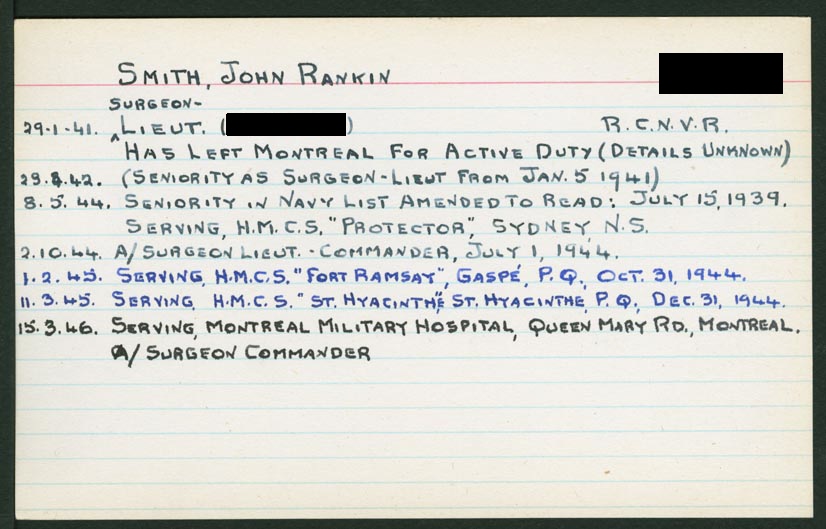 SMITH, JOHN RANKIN
SURGEON-
29-1-41. ^LIEUT. ( ) R.C.N.V.R.
HAS LEFT MONTREAL FOR ACTIVE DUTY (DETAILS UNKNOWN)
(SENIORITY AS SURGEON-LIEUT FROM JAN. 5 1941)
8.5.44. SENIORITY IN NAVY LIST AMENDED TO READ: JULY 15, 1939.
SERVING, H.M.C.S. "PROTECTOR", SYDNEY, N.S.
2.10.44. A/SURGEON LIEUT.-COMMANDER, JULY 1, 1944.
1.2.45. SERVING, H.M.C.S. "FORT RAMSAY", GASPÉ, P.Q., OCT. 31, 1944.
11.3.45. SERVING, H.M.C.S. "ST. HYACINTHE", ST. HYACINTHE, P.Q., DEC. 31, 1944.
15.3.46. SERVING, MONTREAL MILITARY HOSPITAL, QUEEN MARY RD., MONTREAL.
A/SURGEON COMMANDER